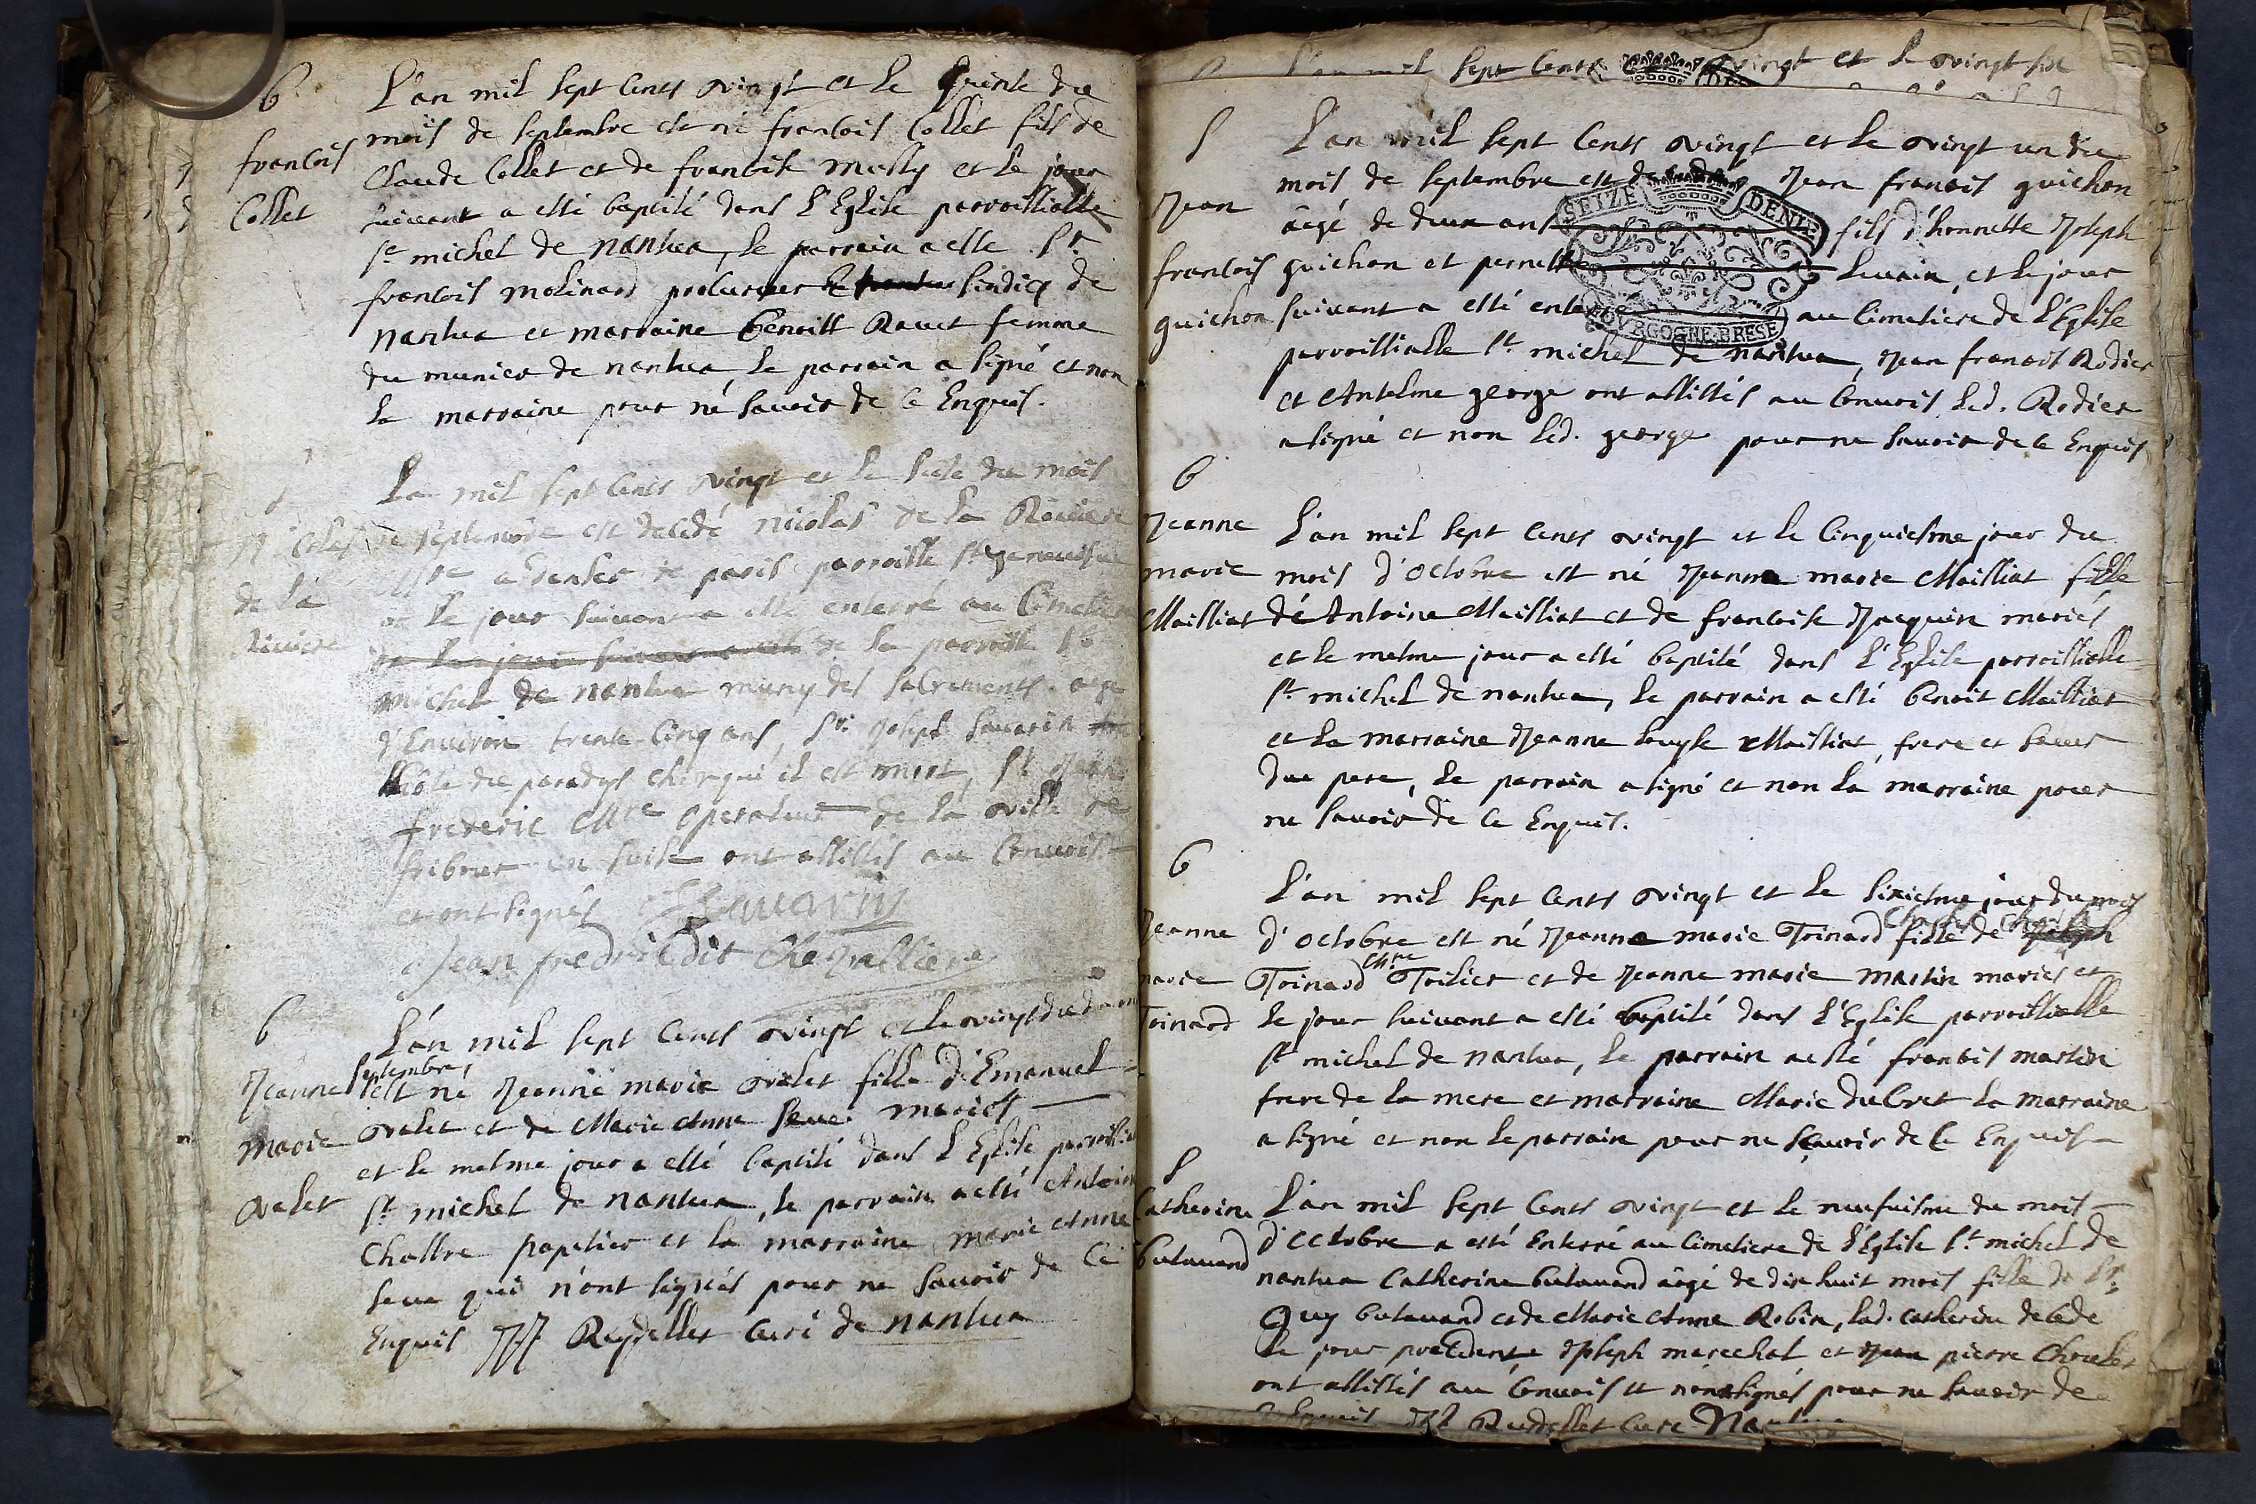 b
francois
Collet
L'an mil sept cents vingt et le quinse du
mois de septembre est né francois Collet fils de
Claude Collet et de francoise messy et le jour
suivant a esté baptisé dans l'Eglise parroissialle
st michel de nantua, le parrain a esté Sr.
francois molinard procureur sindicq de
nantua et marraine benoitt Ravet femme
du munier de nantua, le parrain a signé et non
la marraine pour né savoir de ce Enquis.
Nicolas
de la
Riviere
L'an mil sept cents vingt et le suse du mois
de septembre est decedé nicolas de la Riviere
de paris parroisse ste genevieve
et le jour suivant a esté enterré au Cimetiere
de la parroisse st
michel de nantua muny des sacrements. age
d'Environ trente cinq ans, Sr. joseph Savarin
hôte du paradys chez qui il est mort, Sr jean
frederic Mtre operateur de la ville de
fribour en suise ont assistés au Convois
et ont signés J Savarin
Jean fredric dit Chevalliere
b
Jeanne
marie
Valet
L'an mil sept cents vingt et le vingt du
septembre,
est né Jeanne marie valet fille d'Emanuel
valet et de Marie Anne seve mariés
et le mesme jour a esté baptisé dans l'Eglise
st. michel de nantua, le parrain a esté Antoine
Chastre papetier et la marraine marie Anne
seve qui n'ont signés pour ne savoir de ce
Enquis JJ Reydellet curé de nantua
L'an mil sept cents vingt et le vingt six
S
Jean
francois
guichon
L'an mil sept cents vingt et le vingt un du
mois de septembre est decedé Jean francois guichon
âgé de deux ans fils d'honnette Joseph
guichon et pernette Levrin, et le jour
suivant a esté enterré au Cimetiere de l'Eglise
parroissialle st. michel de nantua, Jean francois Rodier
et Antelme george ont assistés au Convois led. Rodier
a signé et non led. george pour ne savoir de ce Enquis
SEIZE DENIE
BOVRGOGNE.BRESE
b
Jeanne
marie
Mailliat
L'an mil sept cents vingt et le Cinquiesme jour du
mois d'octobre est né Jeanne marie Mailliat fille
dé Antoine Mailliat et de francoise Jacquin mariés
et le mesme jour a esté baptisé dans l'Eglise parroissialle
st. michel de nantua, le parrain a esté benoit Mailliat
et la marraine Jeanne louyse Mailliat, frere et seur
du pere, le parrain a signé et non la marraine pour
ne savoir de ce Enquis.
b
Jeanne
marie
Toinard
L'an mil sept cents vingt et le sixiesme jour du mois
d'octobre est né Jeanne marie Toinard fille de
Toinard Mtre Toilier et de Jeanne marie martin mariés et
le jour suivant a esté baptisé dans l'Eglise parroissialle
st michel de nantua, le parrain a esté francois martin
frere de la mere et marraine Marie du Cret la marraine
a signé et non le parrain pour ne sçavoir de ce Enquis
S
Catherine
butavand
L'an mil sept cents vingt et le neufuisme du mois
d'octobre a esté Enterré au Cimetiere de l'Eglise st. michel de
nantua Catherine butavand âgé de dix huit mois fille de Sr.
Guy butavand et de Marie Anne Robin, lad. catherine decede
le jour precedent Joseph marechal et pierre Choulet
ont assistés au Convois et non signés pour ne savoir de
ce Enquis JJ Reydellet curé Nantua